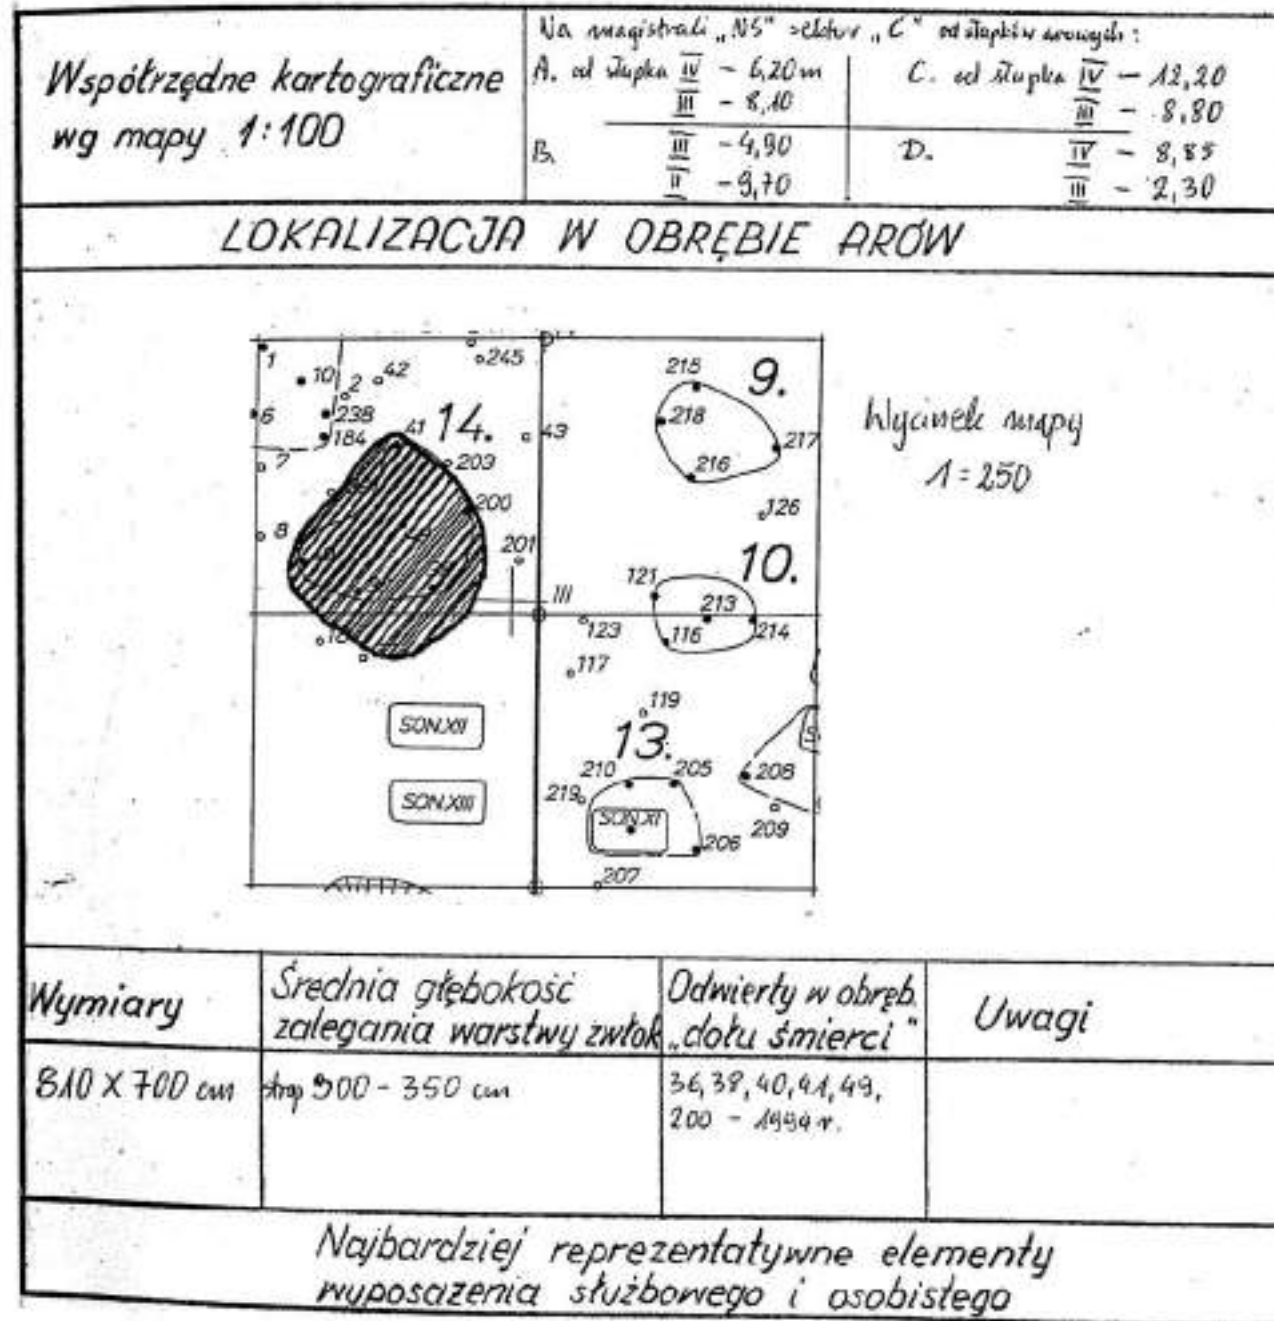 Współrzędne kartograficzne
wg mapy 1:100
Na magistrali „NS" sektor „C" od słupków arowych:
A. od słupka IV - 6,20 m
III - 8,10
B. III - 4,90
II - 9,70
C. od słupka IV - 12,20
III - 8,80
D. IV - 8,85
III - 2,30
LOKALIZACJA W OBRĘBIE ARÓW
1
10
2
42
245
6
238
184
41
14.
43
7
203
200
8
201
III
215
9.
218
217
216
126
10.
121
213
123
116
214
117
119
13.
SON.XII
210
205
208
219
SON.XIII
SON.XI
209
206
207
Wycinek mapy
1=250
Wymiary
Średnia głębokość
zalegania warstwy zwłok
Odwierty w obręb.
„dołu śmierci"
Uwagi
810 X 700 cm
strop 300 - 350 cm
36, 38, 40, 41, 49,
200 - 1994 r.
Najbardziej reprezentatywne elementy
wyposażenia służbowego i osobistego